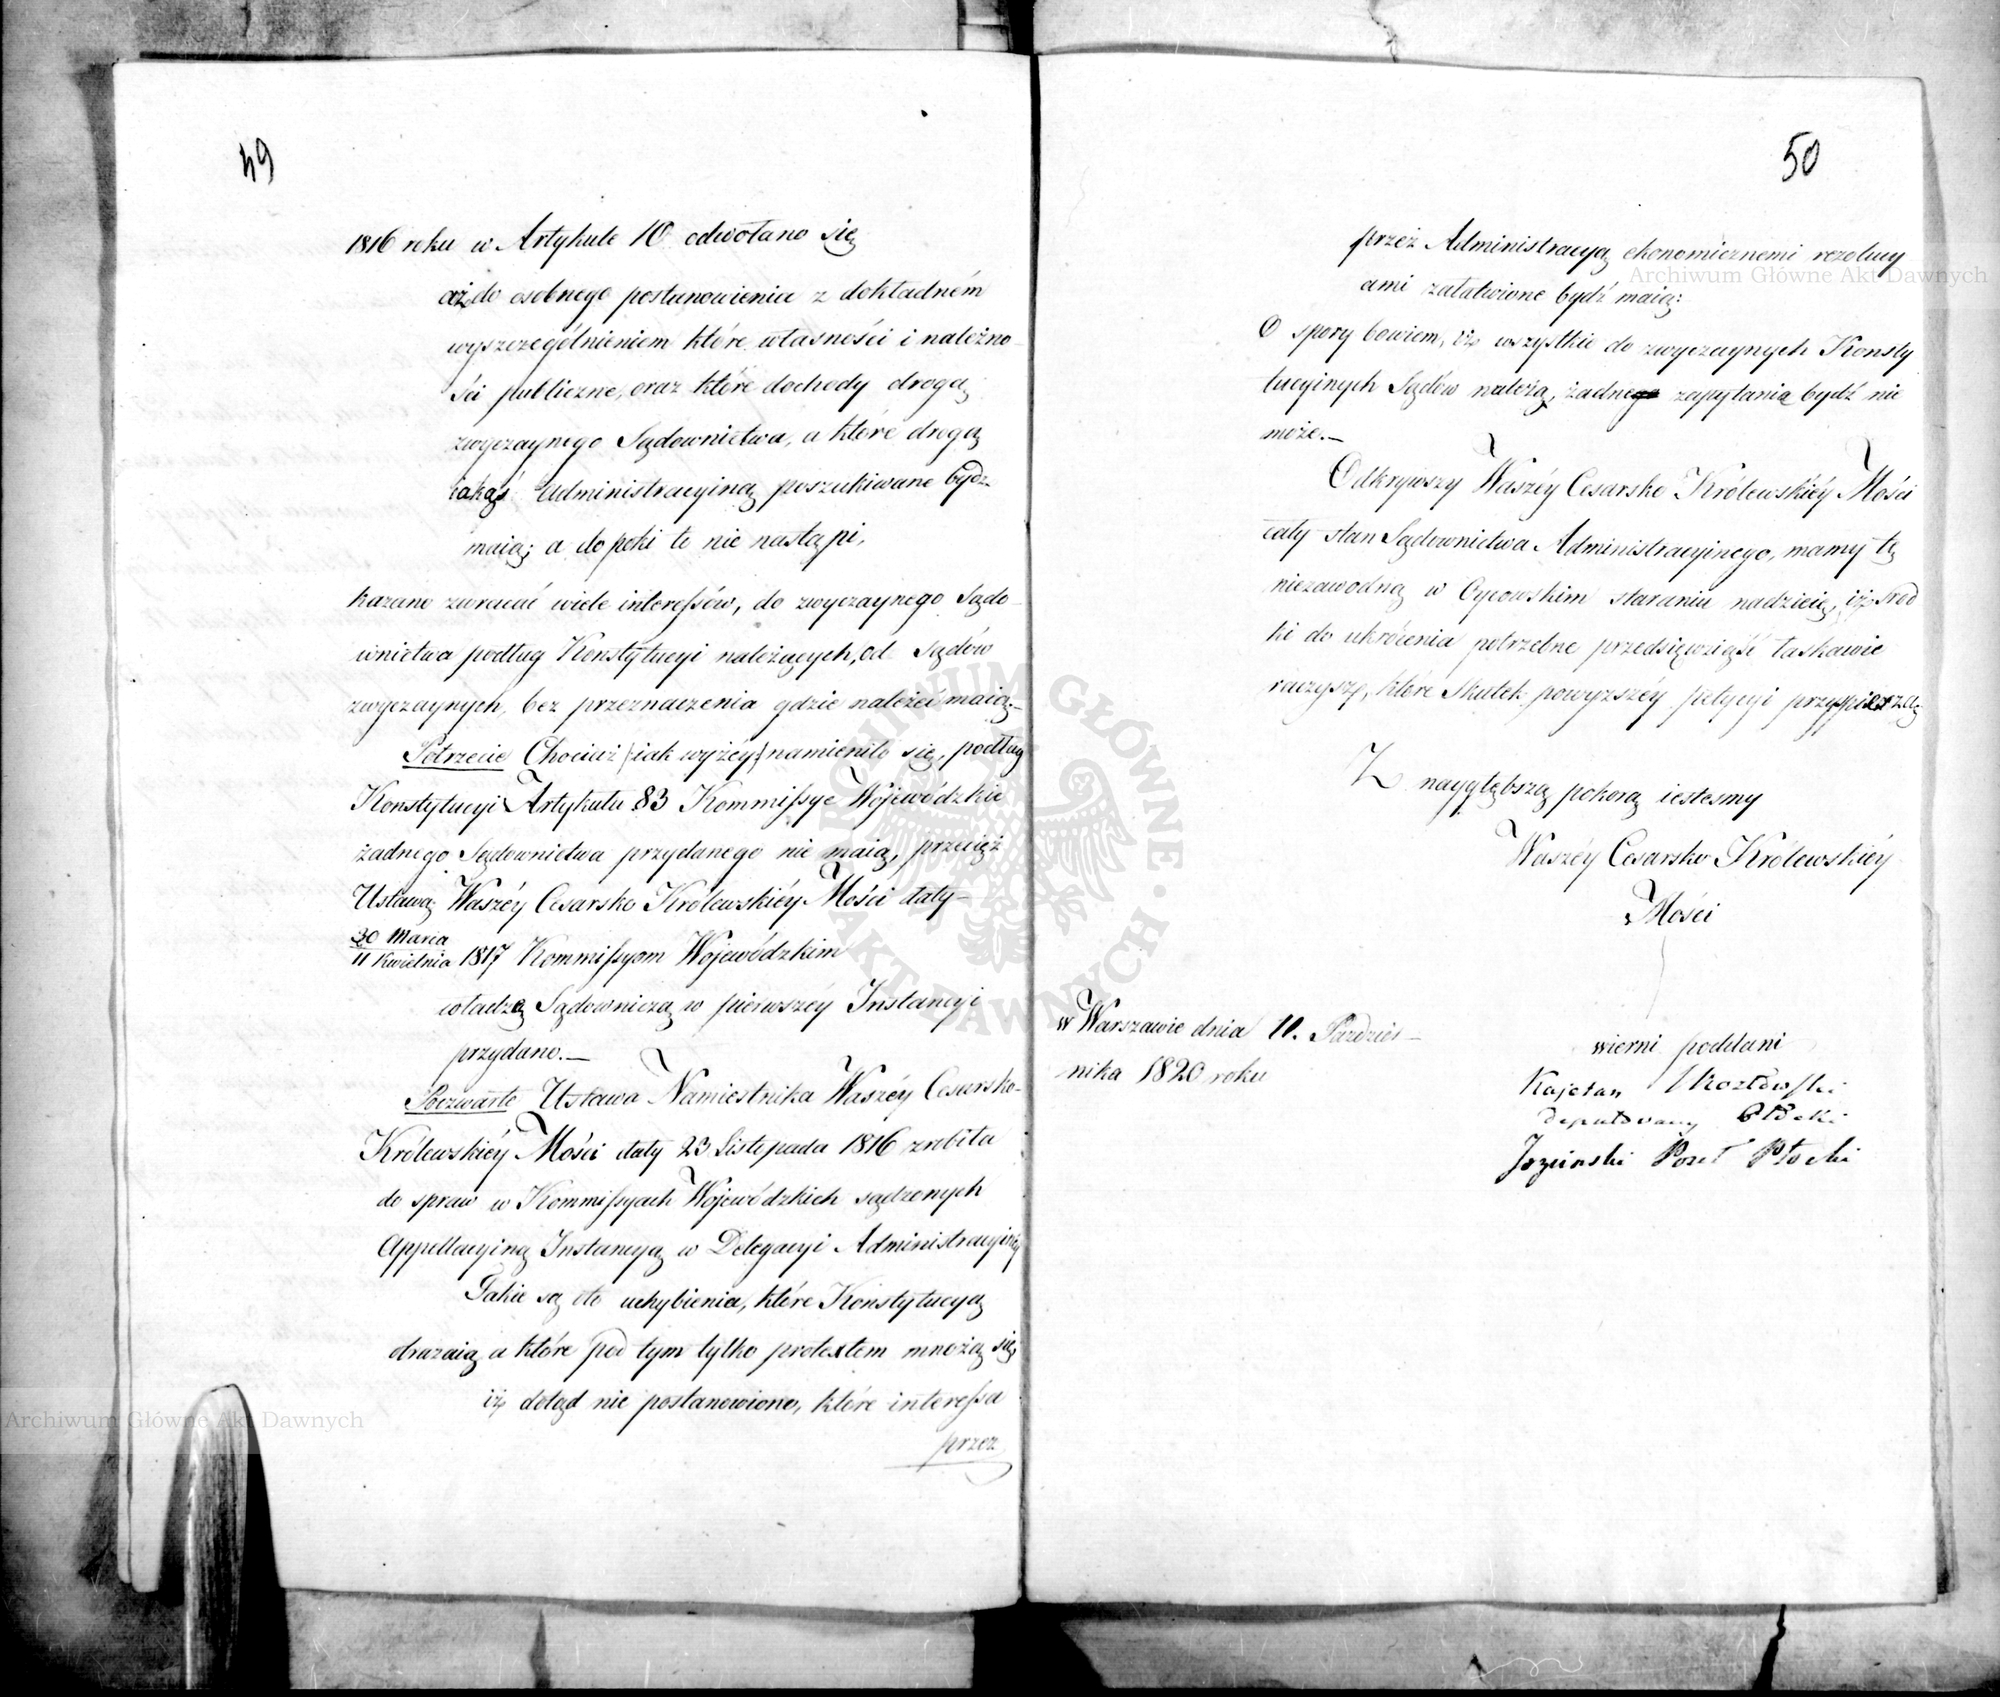 49
1816 roku w Artykule 10 odwołano się
aż do osobnego postanowienia z dokładném
wyszczególnieniem które własności i należno
ści publiczne, oraz które dochody drogą
zwyczaynego Sądownictwa, a które drogą
iakąś administracyiną poszukiwane bydź
maią; a dopoki to nie nastąpi,
kazano zwracać wiele interessów, do zwyczaynego Sądo
wnictwa podług Konstytucyi należących, od Sądów
zwyczaynych, bez przeznaczenia gdzie należeć maią.—
Potrzecie Chociaż (iak wyżéy) namieniło się, podług
Konstytucyi Artykułu 83 Kommissye Wojewódzkie
żadnego Sądownictwa przydanego nie maią, przecięż
Ustawą Waszéy Cesarsko Królewskiéy Mości daty
30 Marca
11 Kwietnia 1817 Kommissyom Wojewódzkim
władzę Sądowniczą w pierwszéy Instancyi
przydano.—
Poczwarte Ustawa Namiestnika Waszéy Cesarsko-
Królewskiéy Mości daty 23 Listopada 1816 zrobiła
do spraw w Kommissyach Wojewódzkich sądzonych
Appellacyiną Instancyą w Delegacyi Administracyinéy
Takie są oto uchybienia, które Konstytucyą
obrażaią a które pod tym tylko pretextem mnożą się,
iż dotąd nie postanowiono, które interessa
przez
50
przez Administracyą ekonomicznemi rezolucy
ami załatwione bydź maią:
O spory bowiem, iż wszystkie do zwyczaynych Konsty
tucyinych Sądów należą, żadnego zapytania bydź nie
może.—
Odkrywszy Waszéy Cesarsko Królewskiéy Mości
cały stan Sądownictwa Administracyinego, mamy tę
niezawodną w Oycowskim staraniu nadzieię, iż środ
ki do ukrócenia potrzebne przedsięwziąść łaskawie
raczysz, które skutek powyższéy petycyi przyspieszą
Z naygłębszą pokorą iestesmy
Waszéy Cesarsko Królewskiéy
Mości
w Warszawie dnia 10. Paździer-
nika 1820 roku
wierni poddani
Kajetan Kozłowski
deputowany
Poseł Płocki
Archiwum Główne Akt Dawnych
Archiwum Główne Akt Dawnych
ARCHIWUM GŁÓWNE AKT DAWNYCH